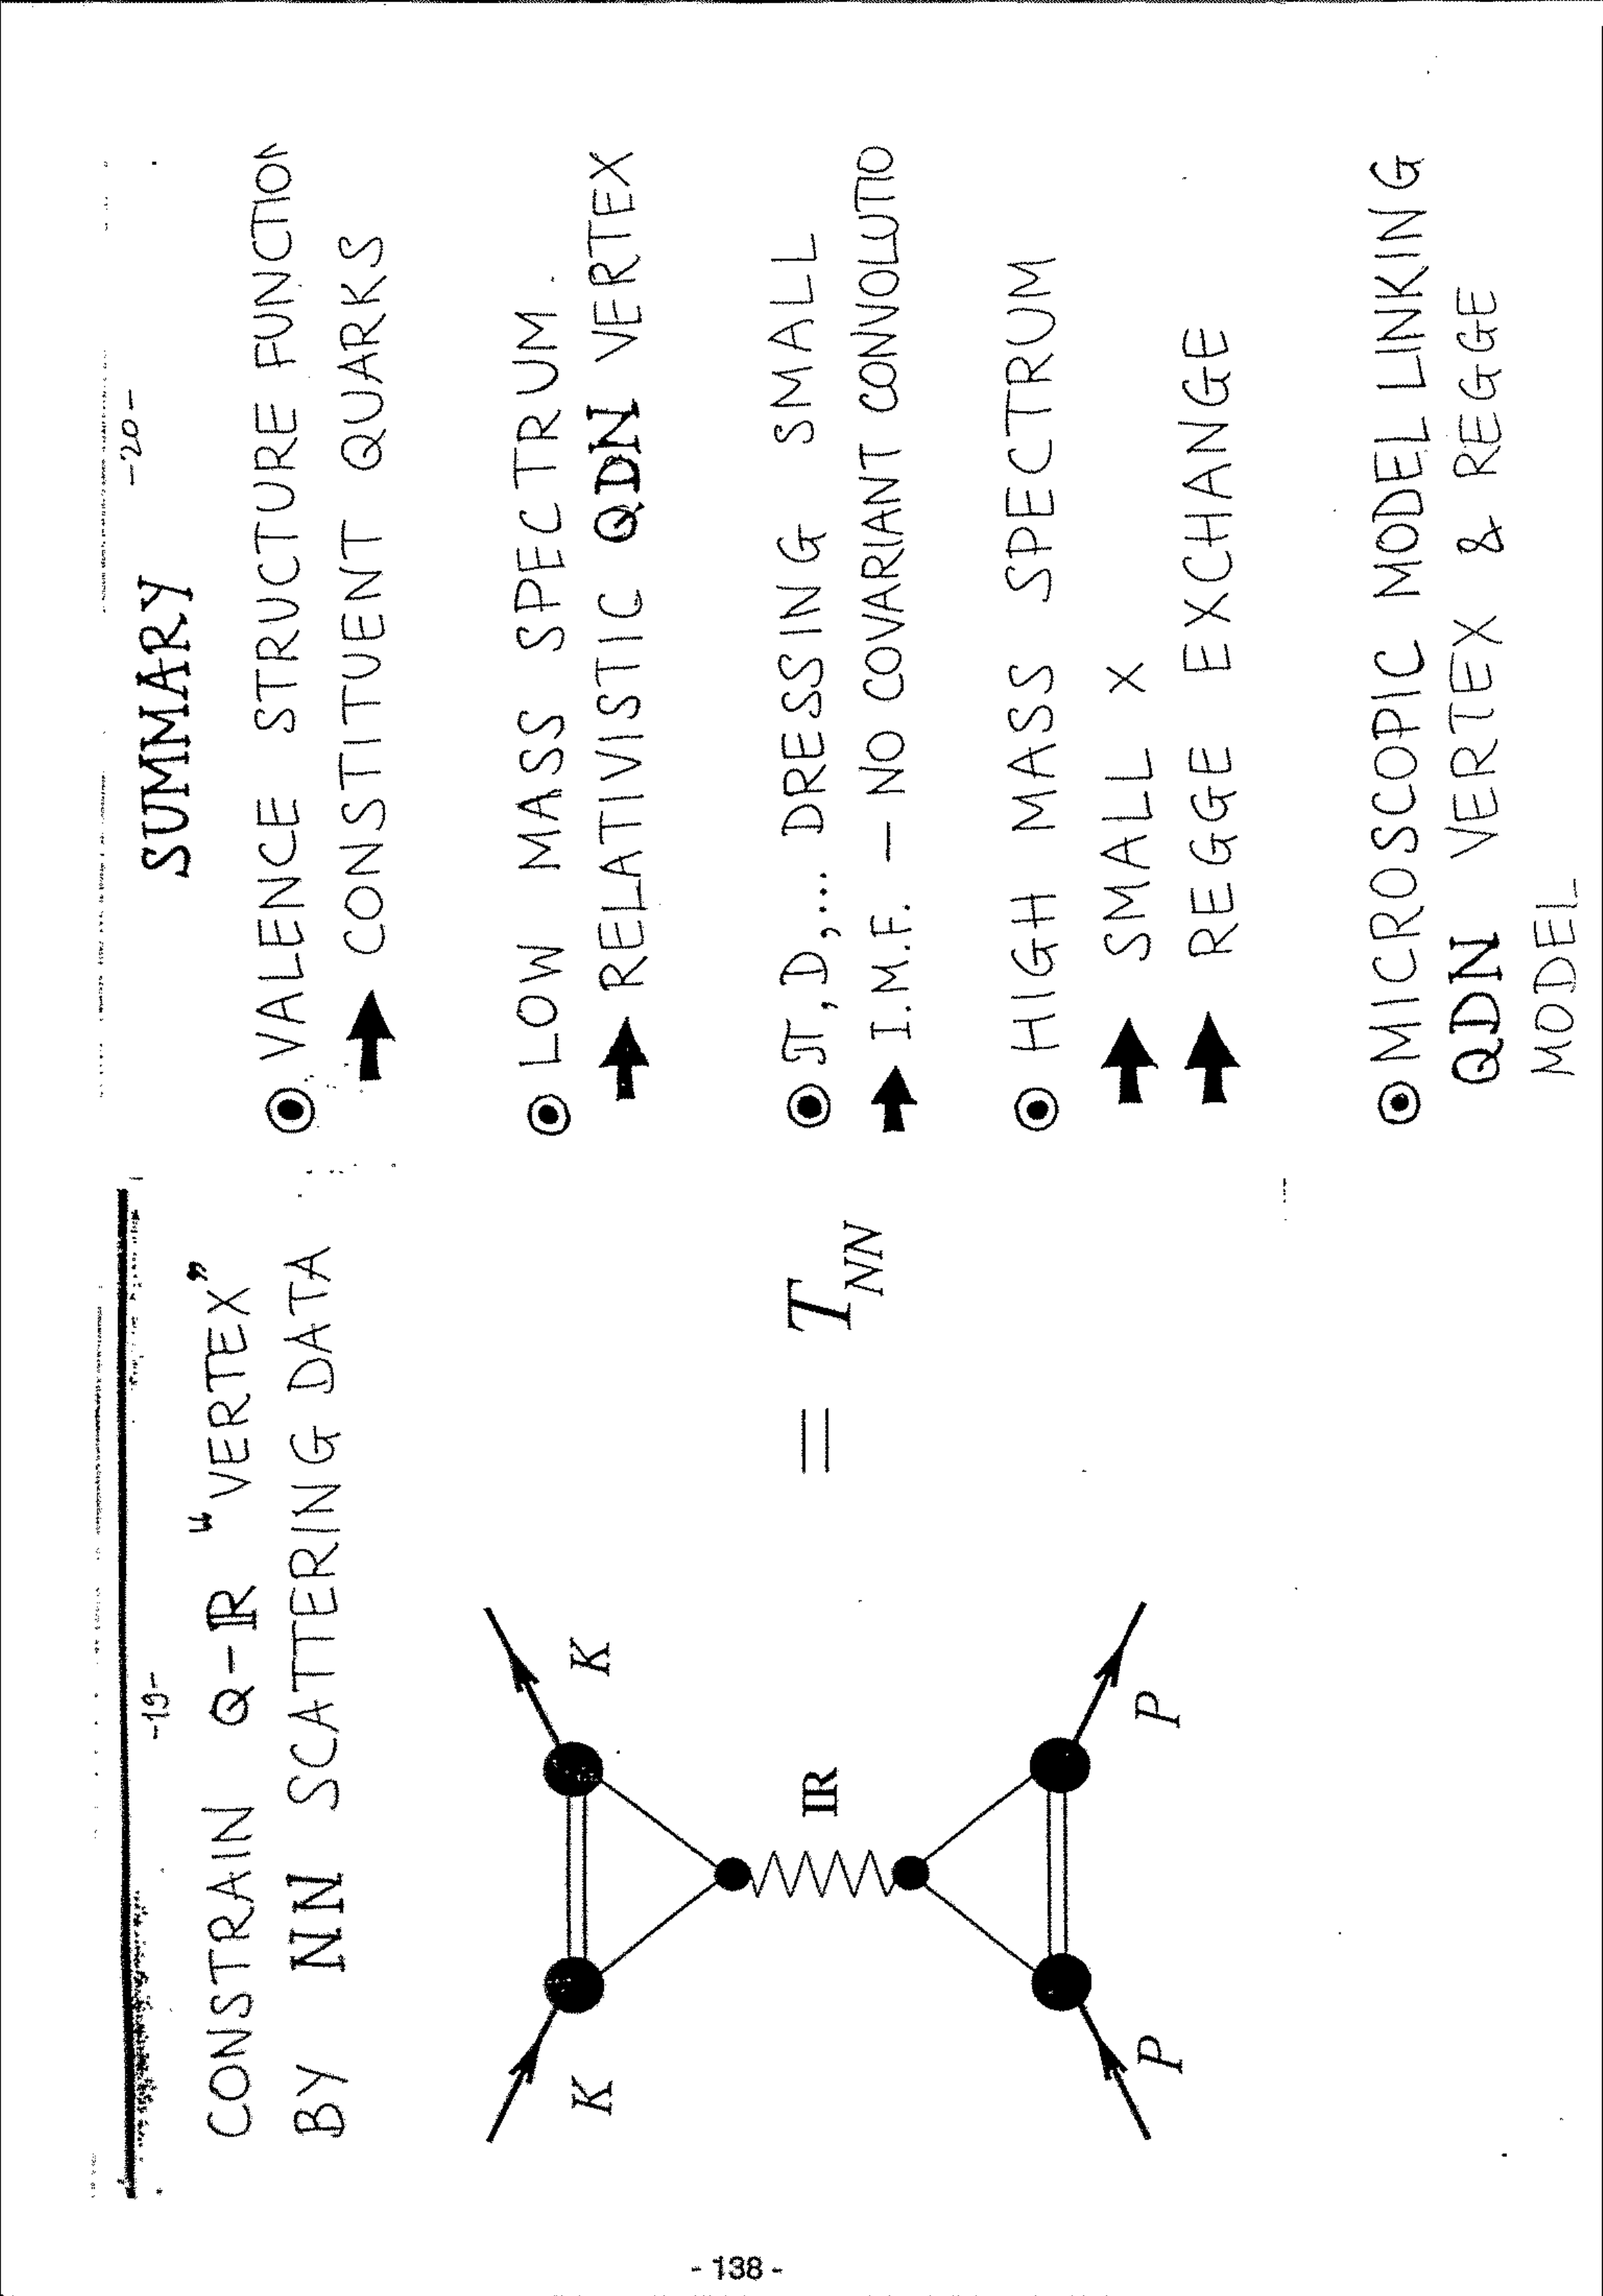 -19-
CONSTRAIN Q-IR "VERTEX"
BY NN SCATTERING DATA
K K
IR
= T_NN
P P
-20-
SUMMARY
VALENCE STRUCTURE FUNCTION
CONSTITUENT QUARKS
LOW MASS SPECTRUM.
RELATIVISTIC QDN VERTEX
π, D, ... DRESSING SMALL
I.M.F. – NO COVARIANT CONVOLUTIO
HIGH MASS SPECTRUM
SMALL X
REGGE EXCHANGE
MICROSCOPIC MODEL LINKING
QDN VERTEX & REGGE
MODEL
- 138 -